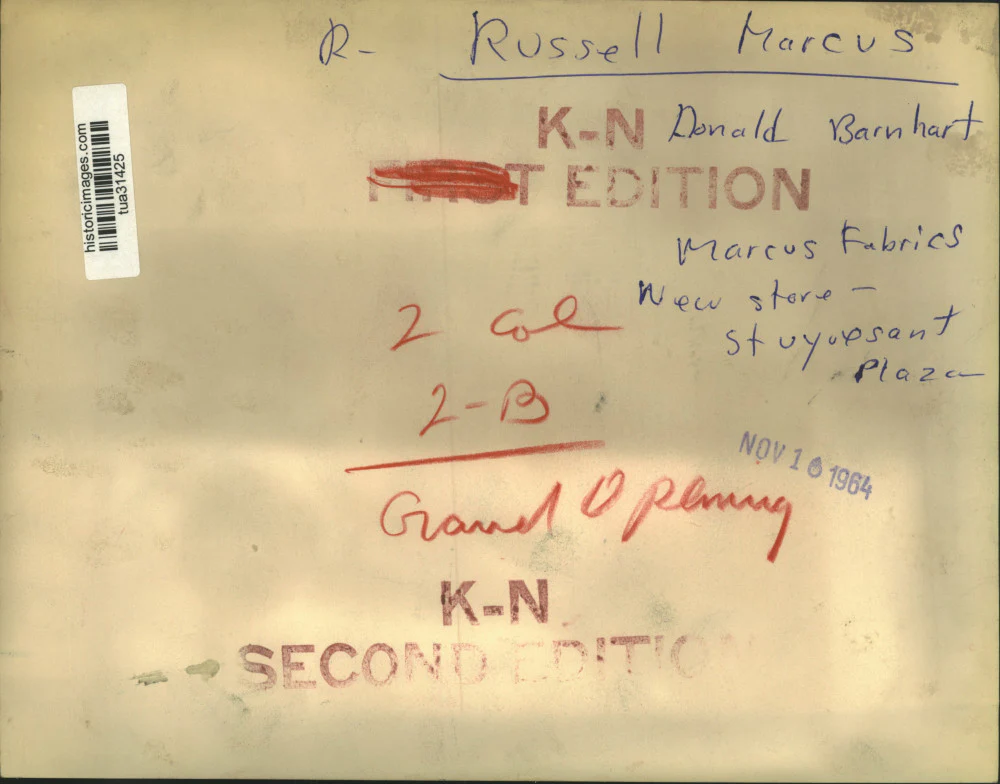 R- Russell Marcus
K-N Donald Barnhart
FIRST EDITION
Marcus Fabrics
New store -
Stuyvesant
Plaza
2 col
2-B
NOV 16 1964
Grand Opening
K-N
SECOND EDITION
historicimages.com
tua31425